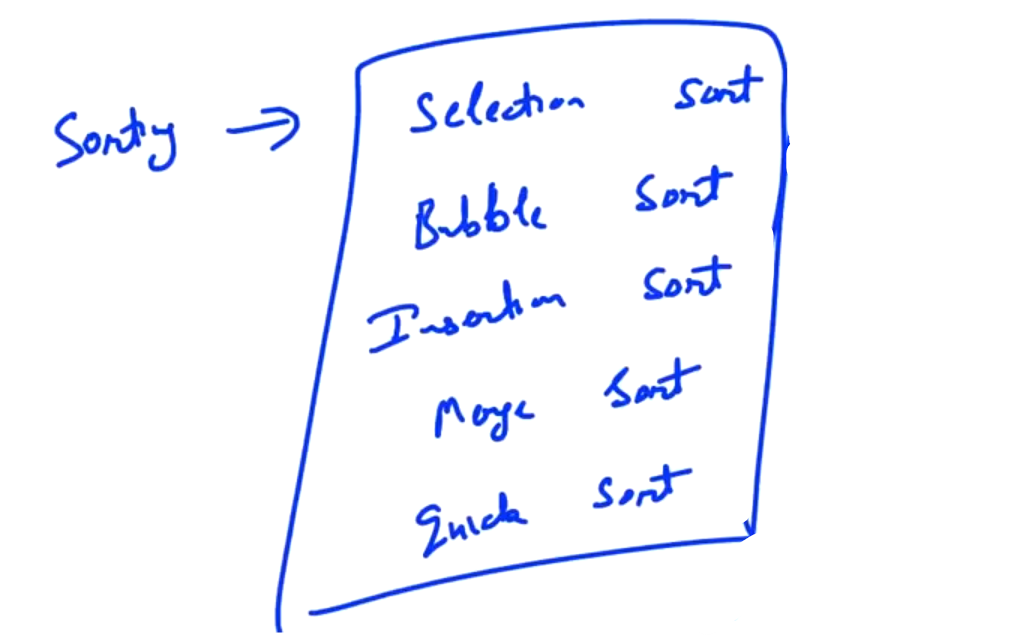 Sorting →
Selection Sort
Bubble Sort
Insertion Sort
Merge Sort
Quick Sort